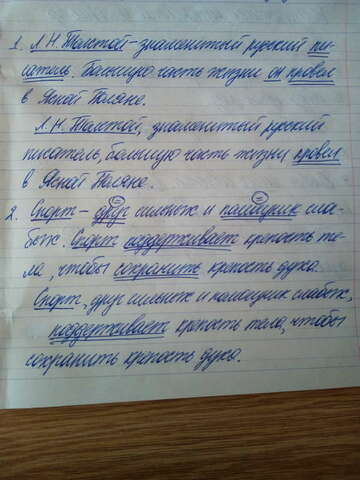 1. Л.Н. Толстой – знаменитый русский пи-
сатель. Большую часть жизни он провел
в Ясной Поляне.
Л.Н. Толстой, знаменитый русский
писатель, большую часть жизни провел
в Ясной Поляне.
2. Спорт – друг сильных и помощник сла-
бых. Спорт поддерживает крепость те-
ла, чтобы сохранить крепость духа.
Спорт, друг сильных и помощник слабых,
поддерживает крепость тела, чтобы
сохранить крепость духа.